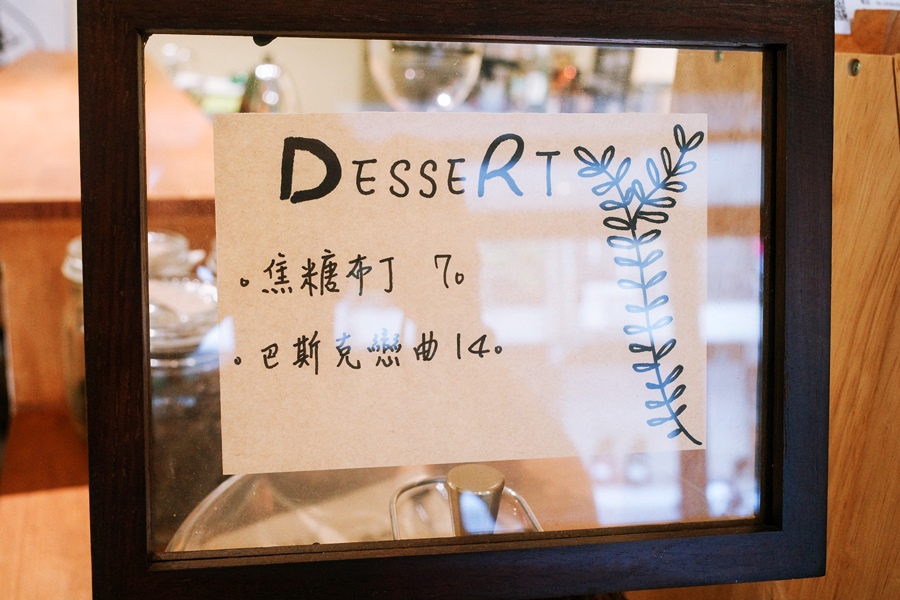 DESSERT
。焦糖布丁 70
。巴斯克戀曲 140